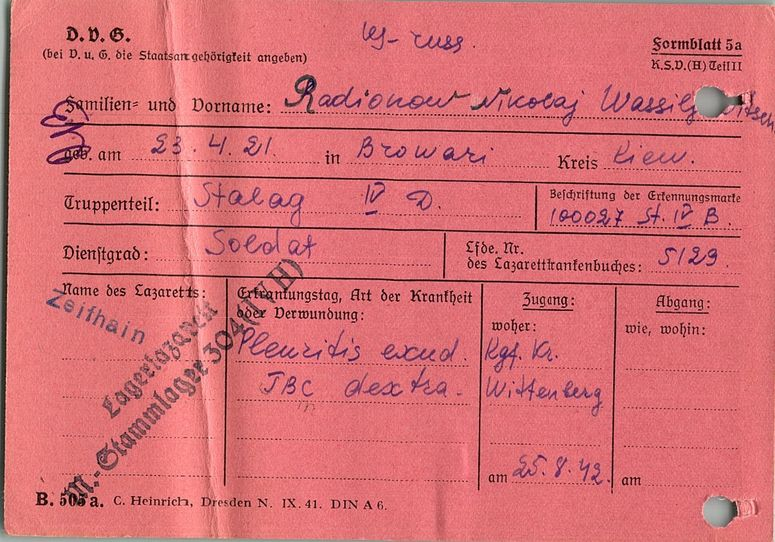 D.V.G.
(bei D. u. G. die Staatsangehörigkeit angeben)
russ.
Formblatt 5a
K.S.D.(H) Teil II
Familien= und Vorname: Radionow Nikolaj Wassilj itsch
geb. am 23.4.21. in Browari Kreis Kiew.
Truppenteil: Stalag IV D.
Beschriftung der Erkennungsmarke
100027 St. IV B.
Dienstgrad: Soldat
Lfde. Nr.
des Lazarettkrankenbuches: 5129
Name des Lazaretts:
Zeithain
Lagerlazarett
M.-Stammlager 304 (IV H)
Erkrankungstag, Art der Krankheit
oder Verwundung:
Pleuritis exud.
TBC dextra.
Zugang:
woher:
Kgf. Kr.
Wittenberg
am 25.8.42.
Abgang:
wie, wohin:
am
B. 505a. C. Heinrich, Dresden N. IX. 41. DIN A 6.